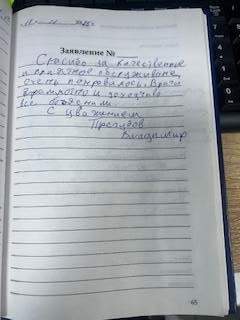 Заявление №
Спасибо за качественное
и приятное обслуживание,
очень понравилось. Врачи
грамотно и доходчиво
все объяснили.
С уважением
Владимир
65